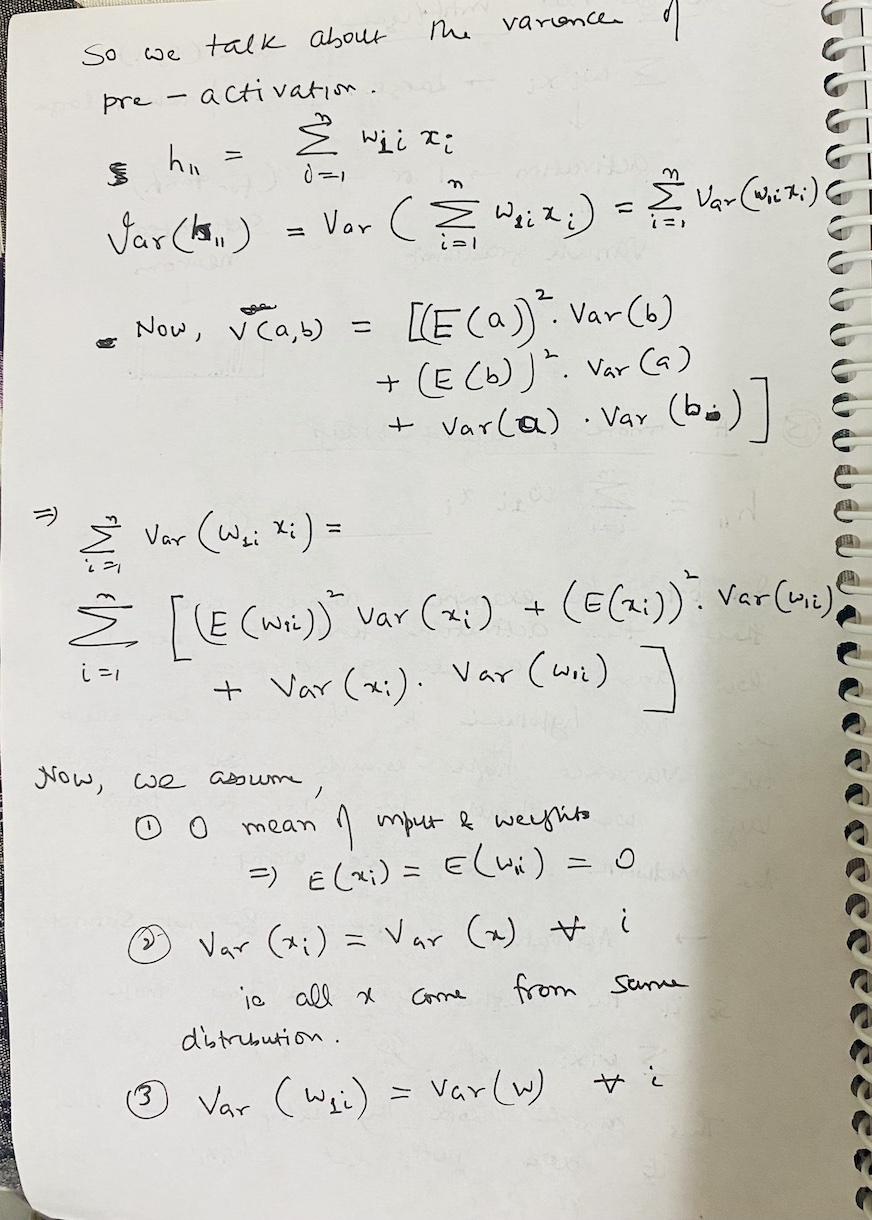 So we talk about the variance of
pre - activation.
h₁₁ = Σⁿ_{i=1} w₁ᵢ xᵢ
Var(h₁₁) = Var ( Σⁿ_{i=1} w₁ᵢ xᵢ ) = Σⁿ_{i=1} Var(w₁ᵢ xᵢ)
Now, V(a,b) = [(E(a))². Var(b)
+ (E(b))². Var(a)
+ Var(a) . Var (b)]
⇒ Σⁿ_{i=1} Var (w₁ᵢ xᵢ) =
Σⁿ_{i=1} [(E(w₁ᵢ))² Var(xᵢ) + (E(xᵢ))². Var(w₁ᵢ)
+ Var(xᵢ). Var(w₁ᵢ) ]
Now, we assume,
① 0 mean of input & weights
⇒ E(xᵢ) = E(w₁ᵢ) = 0
② Var (xᵢ) = Var (x) ∀ i
ie all x come from same
distribution.
③ Var (w₁ᵢ) = Var(w) ∀ i